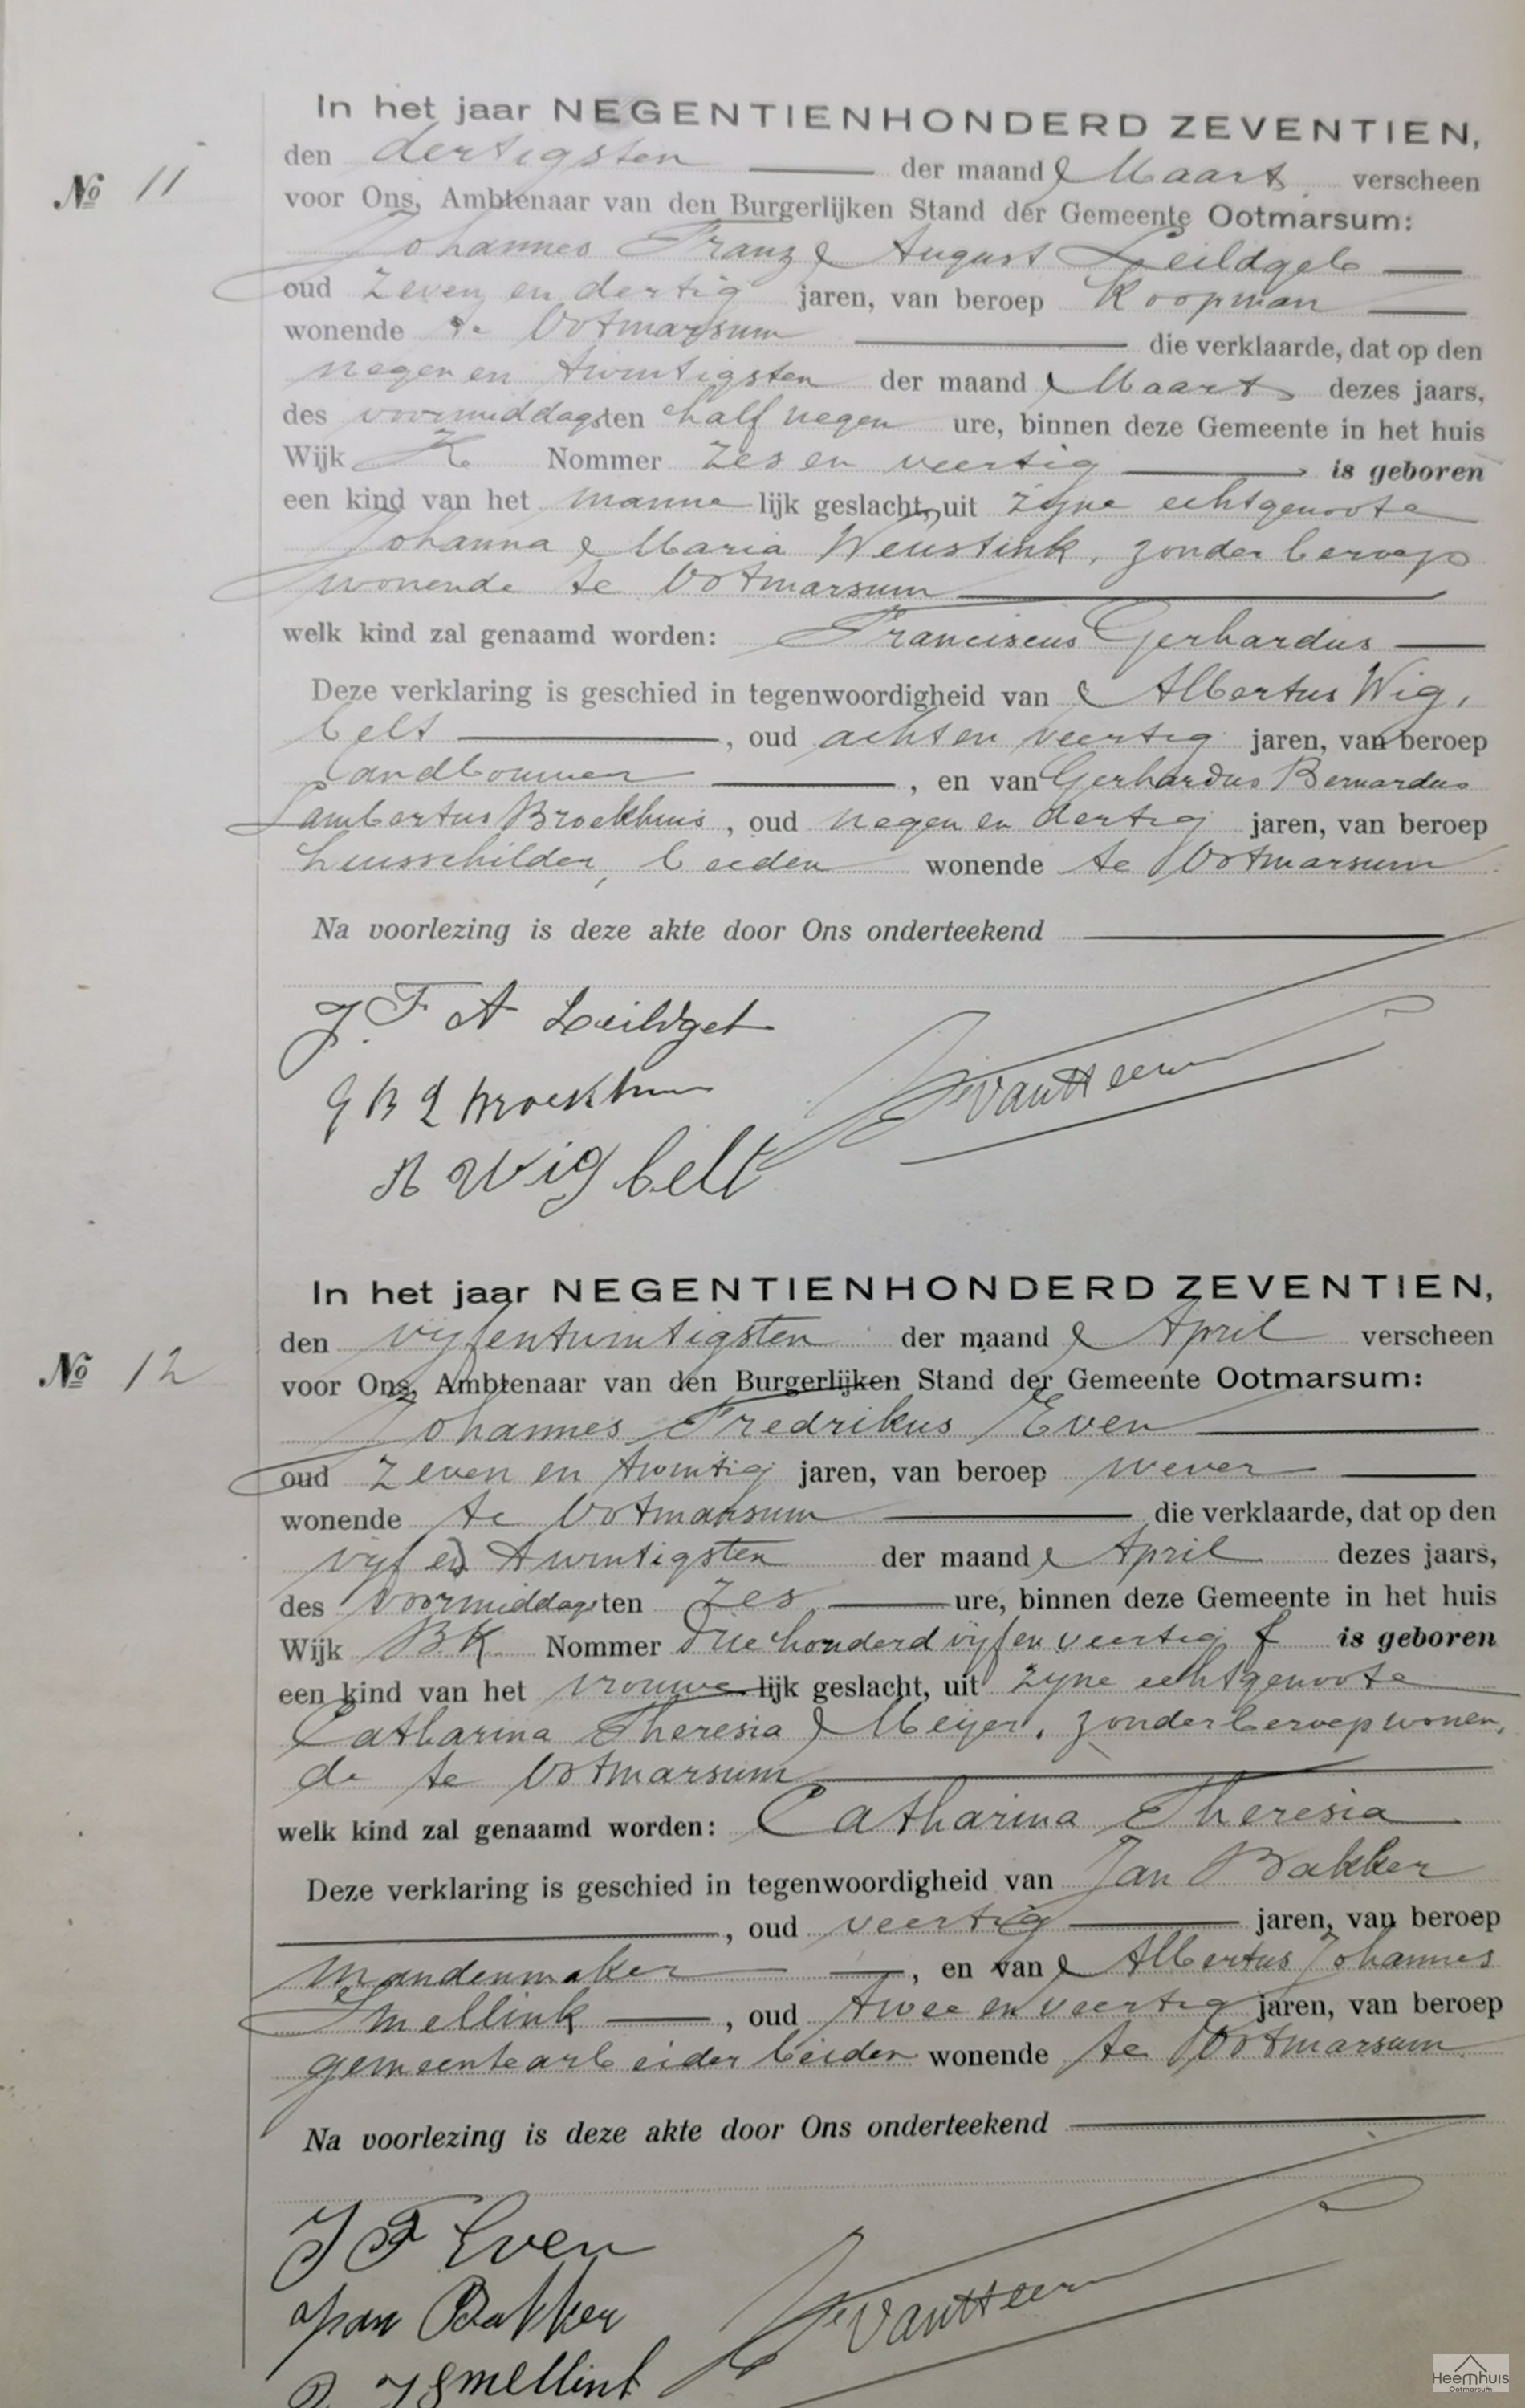 In het jaar NEGENTIENHONDERD ZEVENTIEN,
No 11
den dertigsten der maand Maart verscheen
voor Ons, Ambtenaar van den Burgerlijken Stand der Gemeente Ootmarsum:
Johannes Franz August Leildgeb
oud zeven en dertig jaren, van beroep Koopman
wonende te Ootmarsum die verklaarde, dat op den
negen en twintigsten der maand Maart dezes jaars,
des voormiddags ten half negen ure, binnen deze Gemeente in het huis
Wijk K Nommer zes en veertig is geboren
een kind van het manne lijk geslacht, uit zijne echtgenoote
Johanna Maria Weustink, zonder beroep
wonende te Ootmarsum
welk kind zal genaamd worden: Franciscus Gerhardus
Deze verklaring is geschied in tegenwoordigheid van Albertus Wig,
belt, oud acht en veertig jaren, van beroep
landbouwer, en van Gerhardus Bernardus
Lambertus Broekhuis, oud negen en dertig jaren, van beroep
huisschilder, beiden wonende te Ootmarsum
Na voorlezing is deze akte door Ons onderteekend
J. F A Leildgeb
G B L Broekhuis
A Wigbelt
In het jaar NEGENTIENHONDERD ZEVENTIEN,
No 12
den vijfentwintigsten der maand April verscheen
voor Ons, Ambtenaar van den Burgerlijken Stand der Gemeente Ootmarsum:
Johannes Fredrikus Even
oud zeven en twintig jaren, van beroep wever
wonende te Ootmarsum die verklaarde, dat op den
vijf en twintigsten der maand April dezes jaars,
des voormiddags ten zes ure, binnen deze Gemeente in het huis
Wijk BK Nommer driehonderd vijf en veertig f is geboren
een kind van het vrouwe lijk geslacht, uit zijne echtgenoote
Catharina Theresia Meijer, zonder beroep wonen,
de te Ootmarsum
welk kind zal genaamd worden: Catharina Theresia
Deze verklaring is geschied in tegenwoordigheid van Jan Bakker
, oud veertig jaren, van beroep
mandenmaker, en van Albertus Johannes
Smellink, oud twee en veertig jaren, van beroep
gemeentearbeider beiden wonende te Ootmarsum
Na voorlezing is deze akte door Ons onderteekend
J F Even
Jan Bakker
J Smellink
Heemhuis
Ootmarsum